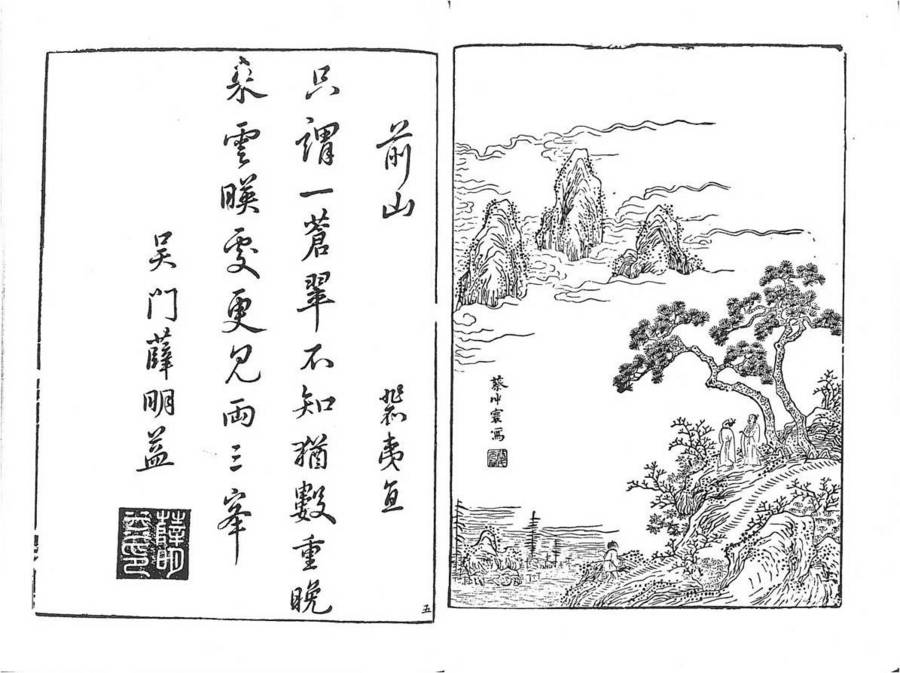 蔡冲寰寫
前山
裴夷直
只謂一蒼翠不知猶數重晚
來雲暎處更見兩三峯
吳門薛明益
五